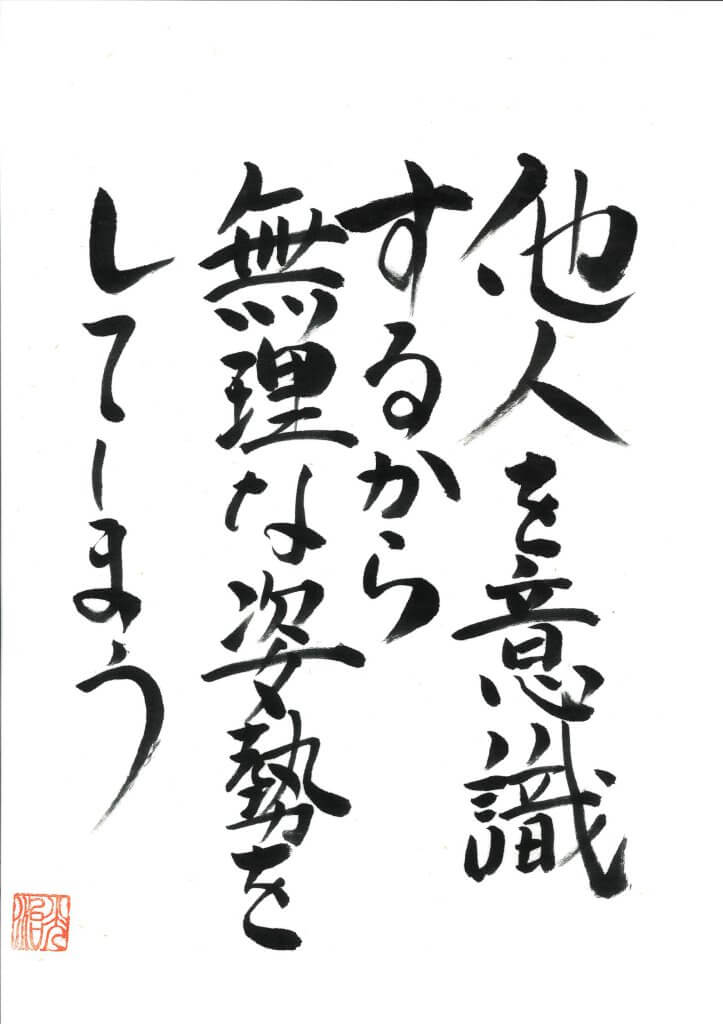 他人を意識
するから
無理な姿勢を
してしまう